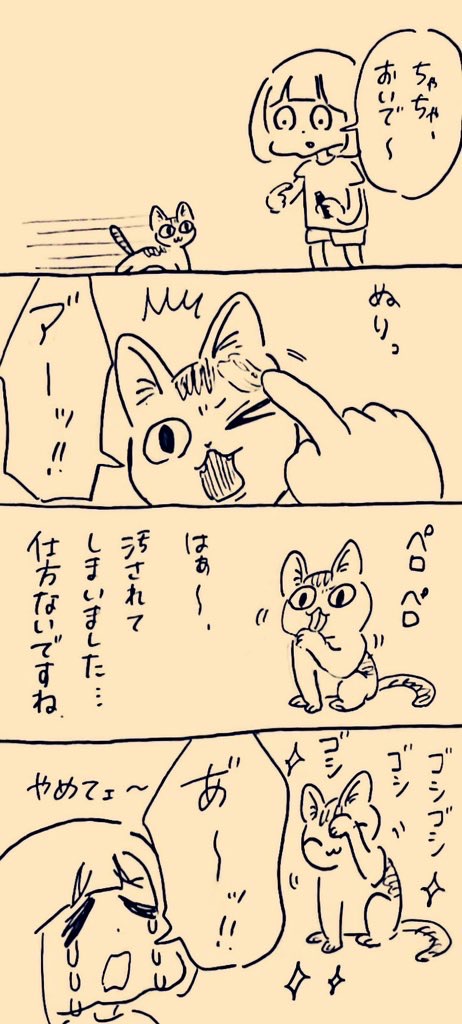 ちゃちゃー
おいで〜
ぬりっ
ア゛ーッ!!
ペロ
ペロ
はぁ〜、
汚されて
しまいました…
仕方ないですね。
ゴシゴシ
ゴシ
ゴシ
あ゛〜ッ!!
やめてェ〜